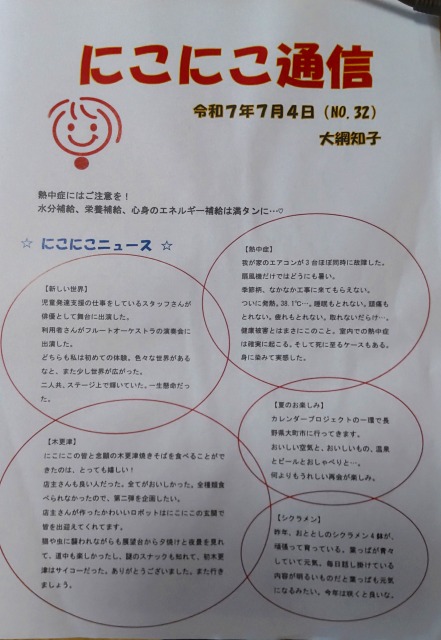 にこにこ通信
令和7年7月4日（NO.32）
大網知子
熱中症にはご注意を！
水分補給、栄養補給、心身のエネルギー補給は満タンに…♡
☆ にこにこニュース ☆
【新しい世界】
児童発達支援の仕事をしているスタッフさんが
俳優として舞台に出演した。
利用者さんがフルートオーケストラの演奏会に
出演した。
どちらも私は初めての体験。色々な世界がある
なと、また少し世界が広がった。
二人共、ステージ上で輝いていた。一生懸命だっ
た。
【熱中症】
我が家のエアコンが3台ほぼ同時に故障した。
扇風機だけではどうにも暑い。
季節柄、なかなか工事に来てもらえない。
ついに発熱。38.1℃…。睡眠もとれない。頭痛も
とれない。疲れもとれない。取れないだらけ…。
健康被害とはまさにこのこと。室内での熱中症
は確実に起こる。そして死に至るケースもある。
身に染みて実感した。
【夏のお楽しみ】
カレンダープロジェクトの一環で長
野県大町市に行ってきます。
おいしい空気と、おいしいもの、温泉
とビールとおしゃべりと…。
何よりもうれしい再会が楽しみ。
【木更津】
にこにこの皆と念願の木更津焼きそばを食べることがで
きたのは、とっても嬉しい！
店主さんも良い人だった。全てがおいしかった。全種類食
べられなかったので、第二弾を企画したい。
店主さんが作ったかわいいロボットはにこにこの玄関で
皆を出迎えてくれてます。
猫や虫に襲われながらも展望台から夕焼けと夜景を見れ
て、道中も楽しかったし、謎のスナックも知れて、初木更
津はサイコーだった。ありがとうございました。また行き
ましょう。
【シクラメン】
昨年、おととしのシクラメン4鉢が、
頑張って育っている。葉っぱが青々
していて元気。毎日話し掛けている
内容が明るいものだと葉っぱも元気
になるみたい。今年は咲くと良いな。